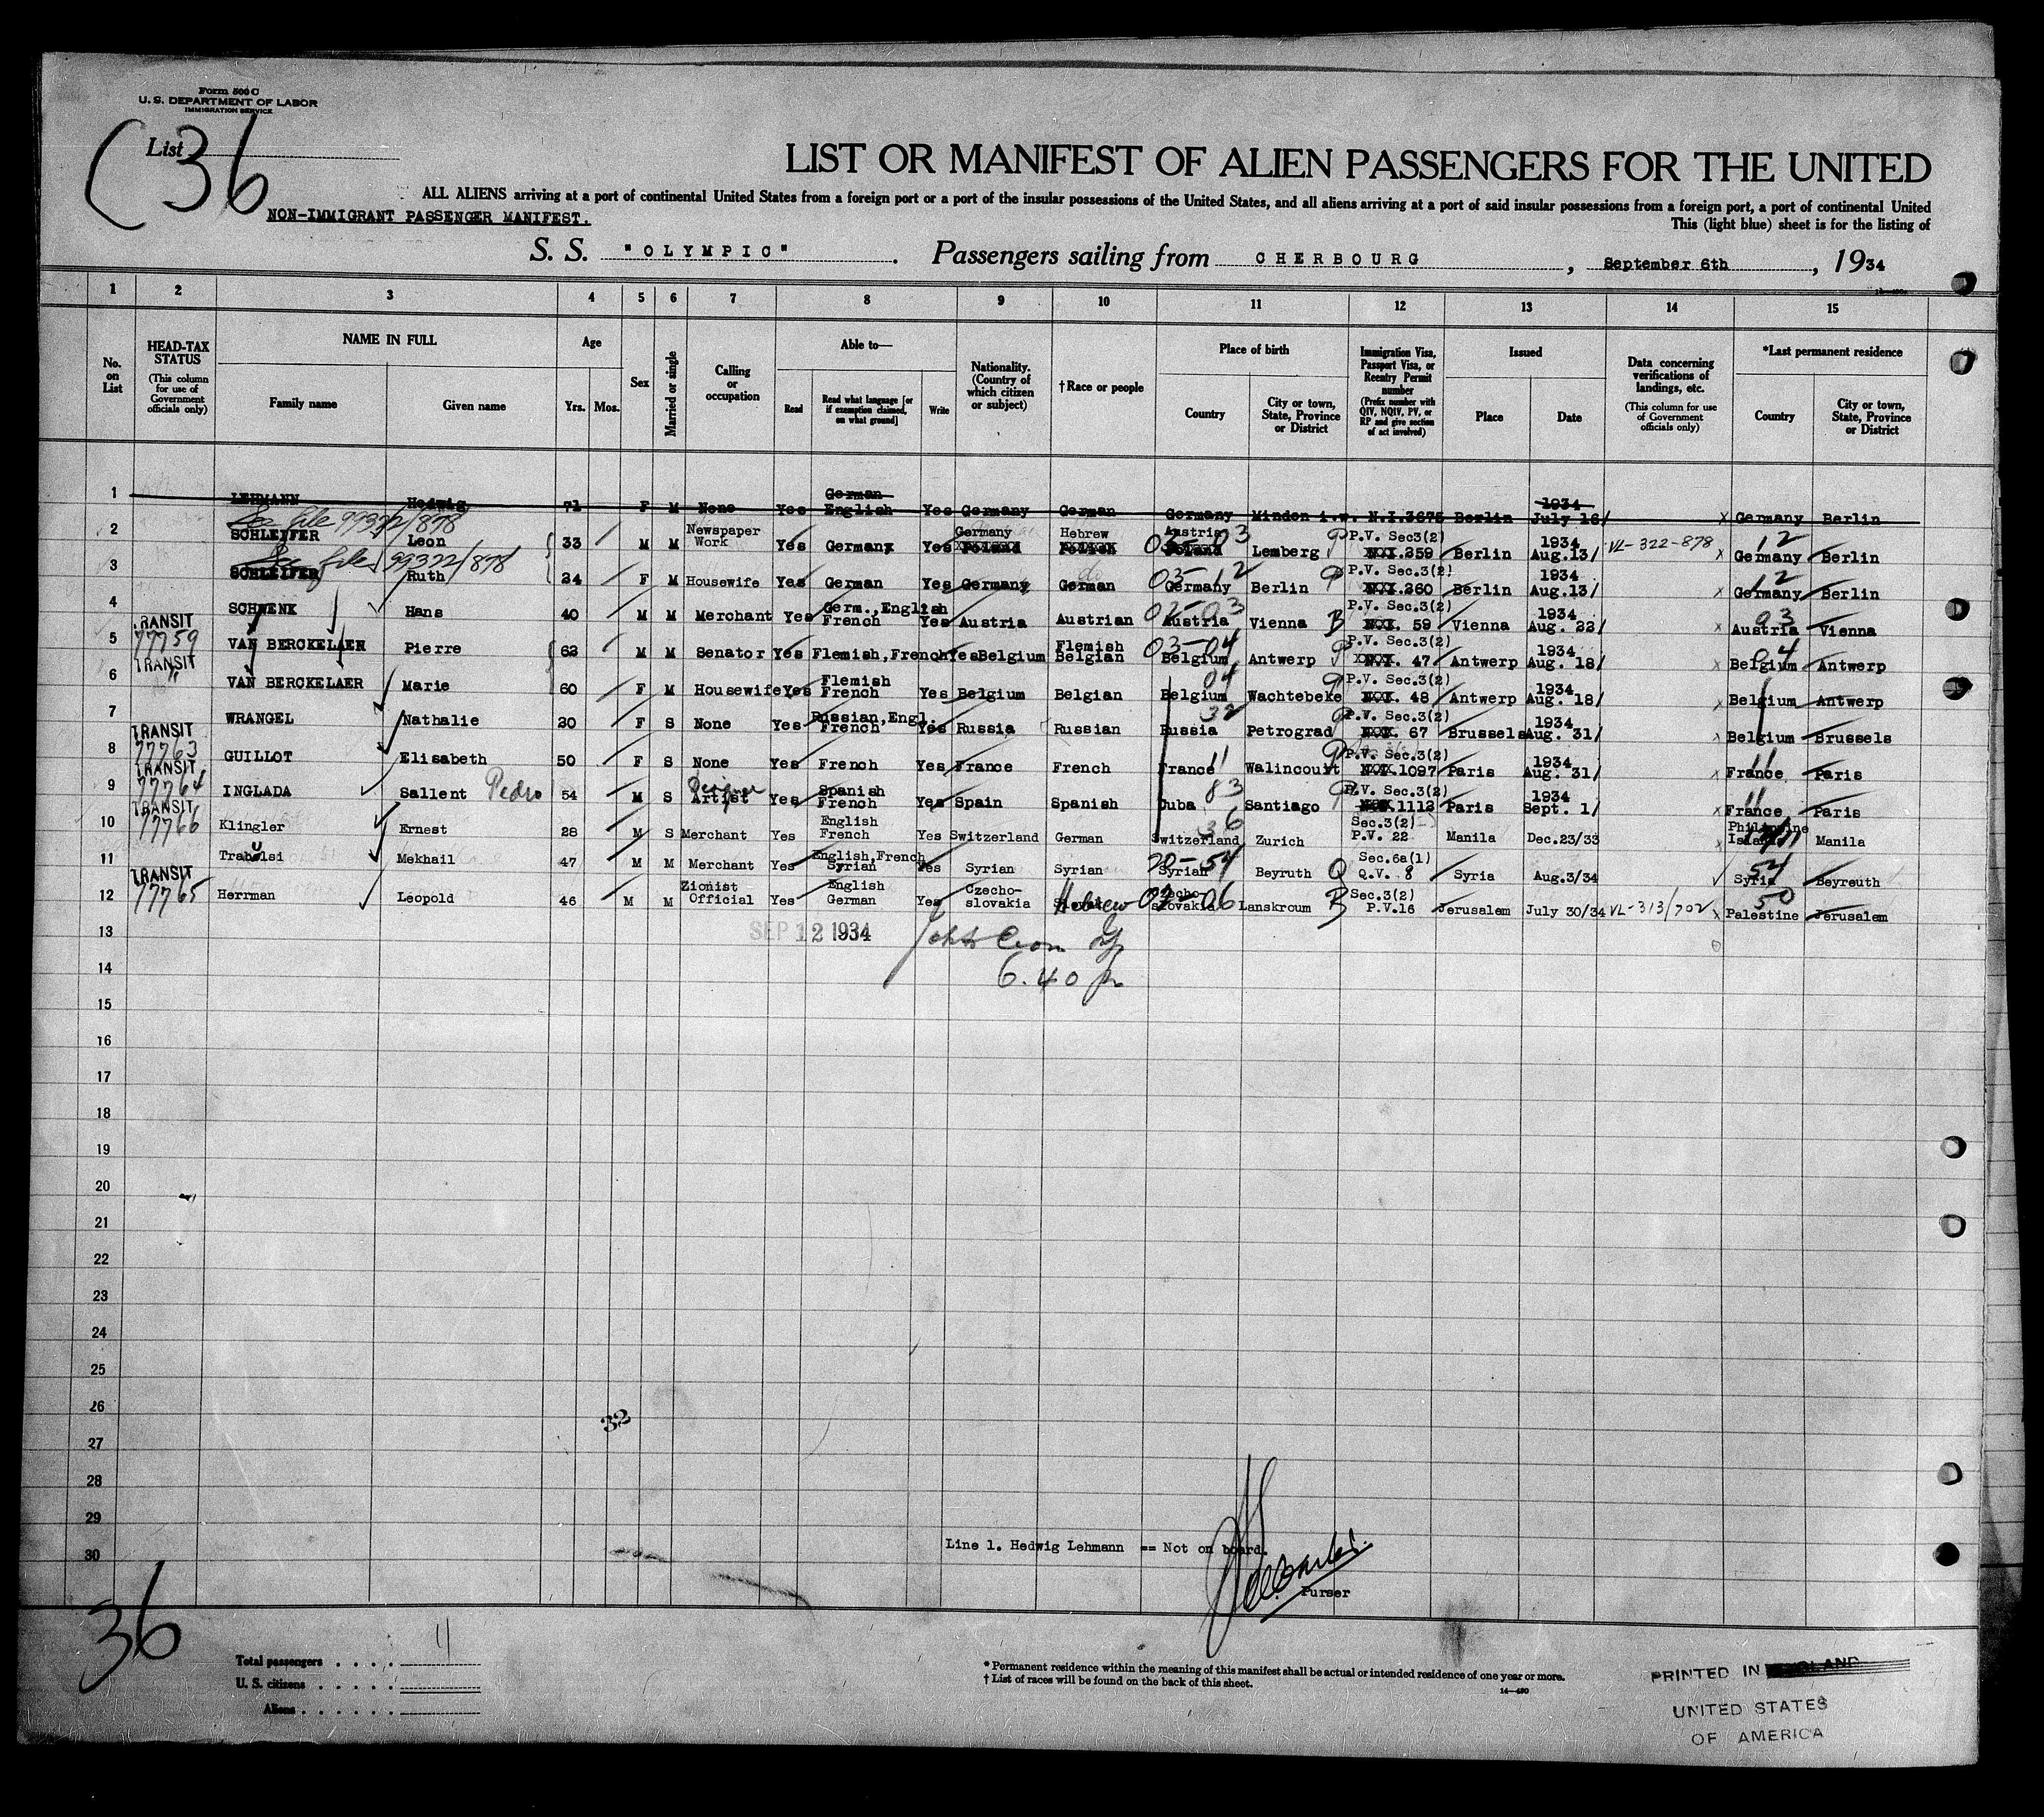 Form 500 C
U. S. DEPARTMENT OF LABOR
IMMIGRATION SERVICE
List 36
LIST OR MANIFEST OF ALIEN PASSENGERS FOR THE UNITED
ALL ALIENS arriving at a port of continental United States from a foreign port or a port of the insular possessions of the United States, and all aliens arriving at a port of said insular possessions from a foreign port, a port of continental United
NON-IMMIGRANT PASSENGER MANIFEST.
This (light blue) sheet is for the listing of
S. S. "OLYMPIC" . Passengers sailing from CHERBOURG , September 6th , 1934
1 2 3 4 5 6 7 8 9 10 11 12 13 14 15
No. on List
HEAD-TAX STATUS (This column for use of Government officials only)
NAME IN FULL
Family name Given name
Age
Yrs. Mos.
Sex
Married or single
Calling or occupation
Able to—
Read Read what language [or if exemption claimed, on what ground] Write
Nationality. (Country of which citizen or subject)
†Race or people
Place of birth
Country City or town, State, Province or District
Immigration Visa, Passport Visa, or Reentry Permit number (Prefix number with QIV, NQIV, PV, or RP and give section of act involved)
Issued
Place Date
Data concerning verifications of landings, etc. (This column for use of Government officials only)
*Last permanent residence
Country City or town, State, Province or District
1 LEHMANN Hedwig 71 F M None Yes German English Yes Germany German Germany Minden i.w. N.I.3675 Berlin 1934 July 16/ x Germany Berlin
See file 99372/878
2 SCHLEIFER Leon 33 M M Newspaper Work Yes German Yes Germany Poland Hebrew Polish Austria Poland 03 Lemberg P.V. Sec3(2) 359 Berlin 1934 Aug.13/ VL-322-878 x Germany 12 Berlin
See file 99372/878
3 SCHLEIFER Ruth 24 F M Housewife Yes German Yes Germany German 03-12 Germany Berlin P.V. Sec.3(2) 360 Berlin 1934 Aug.13/ x Germany 12 Berlin
4 SCHWENK Hans 40 M M Merchant Yes Germ.,English French Yes Austria Austrian 02-03 Austria Vienna B P.V. Sec.3(2) 59 Vienna 1934 Aug. 22/ x Austria 03 Vienna
TRANSIT
5 77759 VAN BERCKELAER Pierre 63 M M Senator Yes Flemish,French Yes Belgium Flemish Belgian 03-04 Belgium Antwerp P.V. Sec.3(2) 47 Antwerp 1934 Aug. 18/ x Belgium 04 Antwerp
TRANSIT
6 " VAN BERCKELAER Marie 60 F M Housewife Yes Flemish French Yes Belgium Belgian 04 Belgium Wachtebeke P.V. Sec.3(2) 48 Antwerp 1934 Aug. 18/ x Belgium Antwerp
7 WRANGEL Nathalie 20 F S None Yes Russian,Engl. French Yes Russia Russian 32 Russia Petrograd P.V. Sec.3(2) 67 Brussels 1934 Aug. 31/ x Belgium Brussels
TRANSIT
8 77763 GUILLOT Elisabeth 50 F S None Yes French Yes France French France 11 Walincourt P.V. Sec.3(2) 1097 Paris 1934 Aug. 31/ x France 11 Paris
TRANSIT
9 77764 INGLADA Sallent Pedro 54 M S Designer Artist Yes Spanish French Yes Spain Spanish 83 Cuba Santiago P.V. Sec.3(2) 1113 Paris 1934 Sept. 1/ x France 11 Paris
TRANSIT
10 77766 Klingler Ernest 28 M S Merchant Yes English French Yes Switzerland German 36 Switzerland Zurich Sec.3(2) P.V. 22 Manila Dec.23/33 x Philippine Islands Manila
11 Trabulsi Mekhail 47 M M Merchant Yes English,French Syrian Yes Syrian Syrian 20-54 Syrian Beyruth Q Sec.6a(1) Q.V. 8 Syria Aug.3/34 Syria 54 Beyreuth
TRANSIT
12 77765 Herrman Leopold 46 M M Zionist Official Yes English German Yes Czecho-slovakia Hebrew 03-06 Czecho-slovakia Lanskroum B Sec.3(2) P.V.16 Jerusalem July 30/34 VL-313/702 x Palestine 50 Jerusalem
13 SEP 12 1934
14 6.40 p
15
16
17
18
19
20
21
22
23
24
25
26 32
27
28
29
30 Line 1. Hedwig Lehmann == Not on board.
Purser
36
Total passengers . . . . 11
U. S. citizens . . . . .
Aliens . . . . . .
* Permanent residence within the meaning of this manifest shall be actual or intended residence of one year or more.
† List of races will be found on the back of this sheet.
14—490
PRINTED IN ENGLAND
UNITED STATES
OF AMERICA